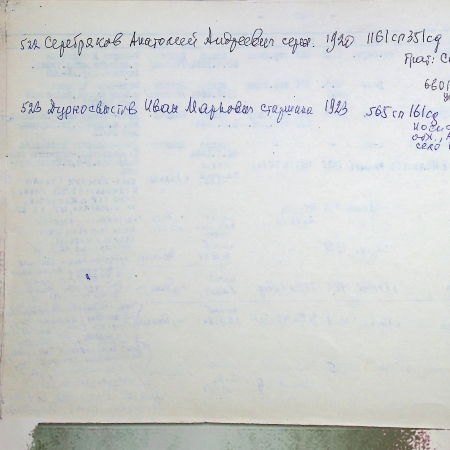 522 Серебряков Анатолий Андреевич серж. 1920 1161 сп 351 сд
Прот: Се
6601
523 Дурносвистов Иван Маркович старшина 1923 565 сп 161 сд
село